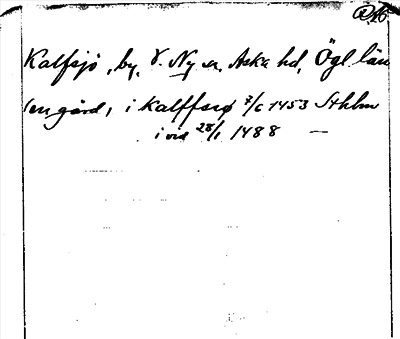 Kalfsjö, by, V. Ny sn, Aska hd, Ögl. län
(en gård, i Kalffsrø 7/6 1453 Sthlm
i vid 28/1 1488 —